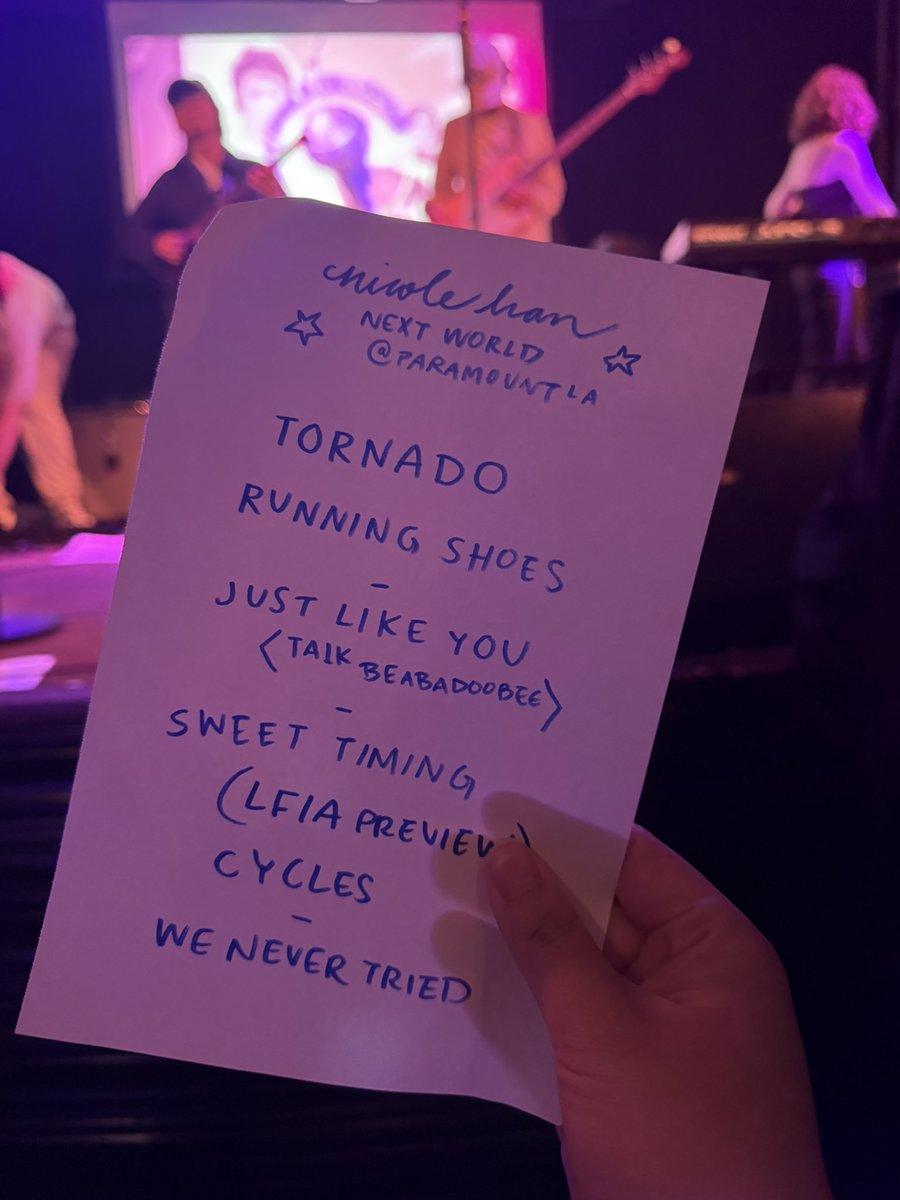 nicole han
NEXT WORLD
@PARAMOUNT LA
TORNADO
RUNNING SHOES
-
JUST LIKE YOU
<TALK BEABADOOBEE>
-
SWEET TIMING
(LFIA PREVIEW)
CYCLES
-
WE NEVER TRIED